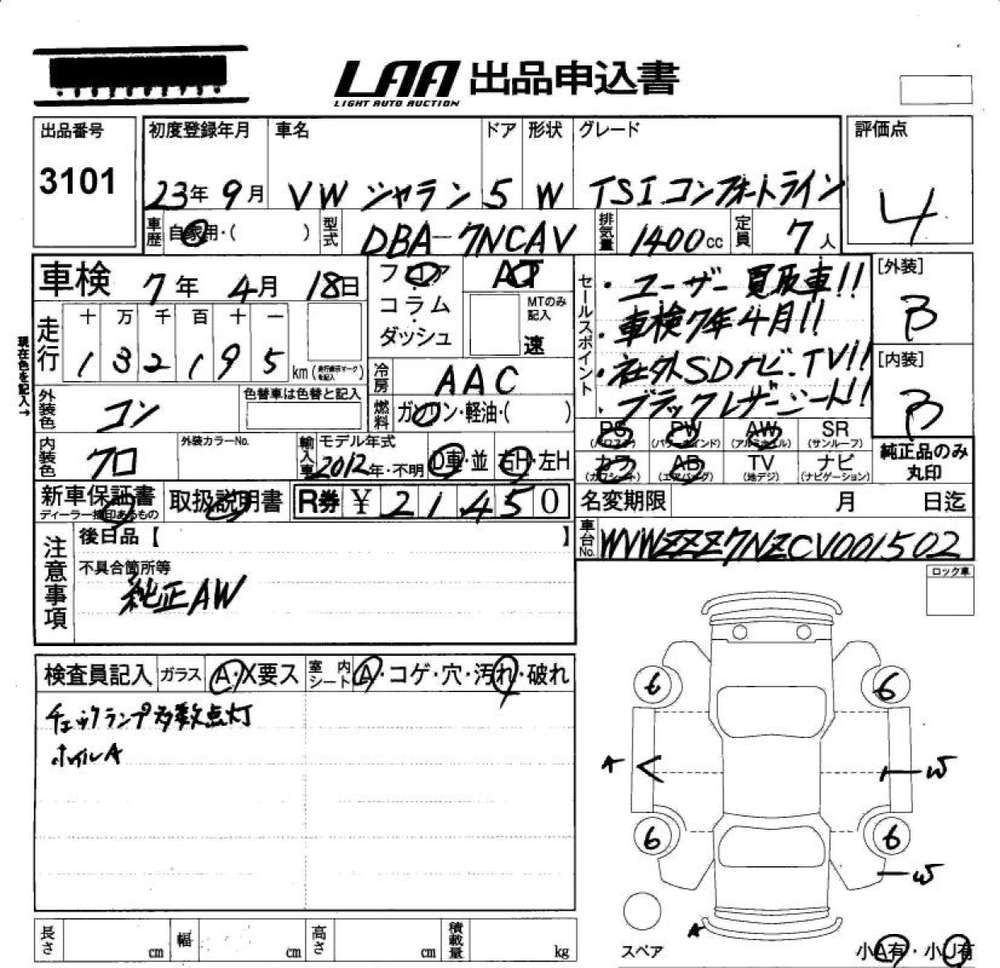 LAA 出品申込書
LIGHT AUTO AUCTION
出品番号 初度登録年月 車名 ドア 形状 グレード 評価点
3101 23年 9月 VW シャラン 5 W TSI コンフォートライン 4
車歴 自家用・( ) 型式 DBA-7NCAV 排気量 1400cc 定員 7人
車検 7年 4月 18日 フロア AT セールスポイント ・ユーザー買取車!! [外装]
コラム MTのみ記入 ・車検7年4月!! B
ダッシュ 速 ・社外SDナビ.TV!! [内装]
現在色を記入→ 走行 十 万 千 百 十 一 ・ブラックレザーシート!! B
1 3 2 1 9 5 km (走行表示マークを記入) 冷房 AAC
外装色 コン 色替車は色替と記入 燃料 ガソリン・軽油・( ) PS PW AW SR 純正品のみ
(パワステ) (パワーウインド) (アルミホイル) (サンルーフ) 丸印
内装色 クロ 外装カラーNo. 輸入車 モデル年式 カワ AB TV ナビ
2012年・不明 D車・並 右H・左H (カワシート) (エアバッグ) (地デジ) (ナビゲーション)
新車保証書 取扱説明書 R券 ¥ 21450 名変期限 月 日迄
ディーラー捺印あるもの
注意事項 後日品【 】 車台No. WVWZZZ7NZCV001502
不具合箇所等 ロック車
純正AW
検査員記入 ガラス A・X要ス 室内シート A・コゲ・穴・汚れ・破れ
チェックランプ多数点灯
ホイルA
6 6
A W
6 6
W
A
スペア 小A有・小U有
長さ cm 幅 cm 高さ cm 積載量 kg